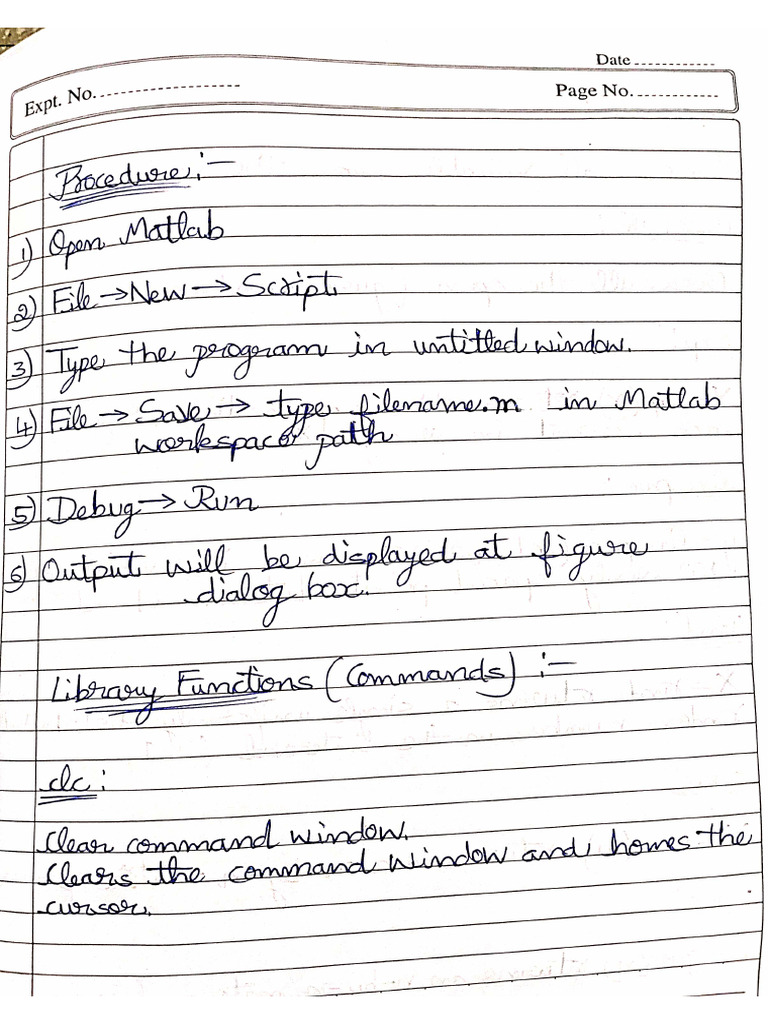 Date ............
Expt. No. ....................
Page No. ............
Procedure :-
1) Open Matlab
2) File → New → Script.
3) Type the program in untitled window.
4) File → Save → type filename.m in Matlab
workspace path
5) Debug → Run
6) Output will be displayed at figure
dialog box.
Library Functions (Commands) :-
clc :
Clear command window.
Clears the command window and homes the
cursor.